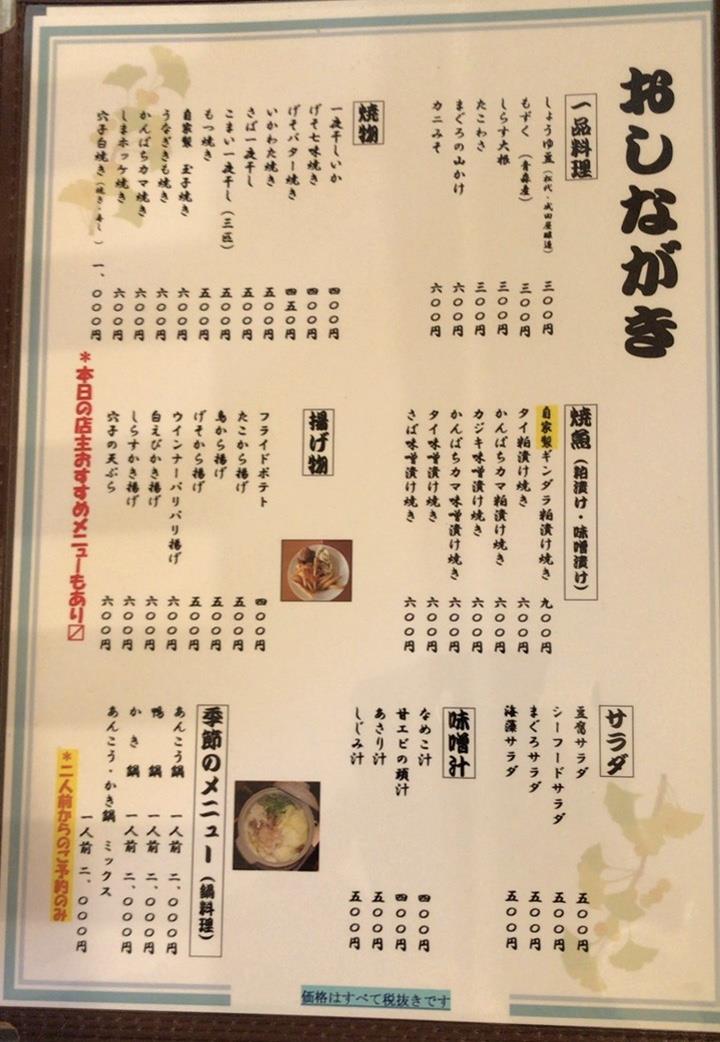 おしながき
一品料理
しょうゆ豆（松代・成田屋醸造） 三〇〇円
もずく（青森産） 三〇〇円
しらす大根 三〇〇円
たこわさ 三〇〇円
まぐろの山かけ 六〇〇円
カニみそ 六〇〇円
焼物
一夜干しいか 四〇〇円
げそ七味焼き 四〇〇円
げそバター焼き 四五〇円
いかわた焼き 五〇〇円
さば一夜干し 五〇〇円
こまい一夜干し（三匹） 五〇〇円
もつ焼き 五〇〇円
自家製 玉子焼き 六〇〇円
うなぎきも焼き 六〇〇円
かんぱちカマ焼き 六〇〇円
しまホッケ焼き 六〇〇円
穴子白焼き（焼き・蒸し） 一、〇〇〇円
焼魚（粕漬け・味噌漬け）
自家製ギンダラ粕漬け焼き 九〇〇円
タイ粕漬け焼き 六〇〇円
かんぱちカマ粕漬け焼き 六〇〇円
カジキ味噌漬け焼き 六〇〇円
かんぱちカマ味噌漬け焼き 六〇〇円
タイ味噌漬け焼き 六〇〇円
さば味噌漬け焼き 六〇〇円
揚げ物
フライドポテト 四〇〇円
たこから揚げ 五〇〇円
鳥から揚げ 五〇〇円
げそから揚げ 五〇〇円
ウインナーパリパリ揚げ 六〇〇円
白えびかき揚げ 六〇〇円
しらすかき揚げ 六〇〇円
穴子の天ぷら 六〇〇円
＊本日の店主おすすめメニューもあり〼
サラダ
豆腐サラダ 五〇〇円
シーフードサラダ 五〇〇円
まぐろサラダ 五〇〇円
海藻サラダ 五〇〇円
味噌汁
なめこ汁 四〇〇円
甘エビの頭汁 四〇〇円
あさり汁 五〇〇円
しじみ汁 五〇〇円
季節のメニュー（鍋料理）
あんこう鍋 一人前 二、〇〇〇円
鴨 鍋 一人前 二、〇〇〇円
かき 鍋 一人前 二、〇〇〇円
あんこう・かき鍋 ミックス
一人前 二、〇〇〇円
＊二人前からのご予約のみ
価格はすべて税抜きです